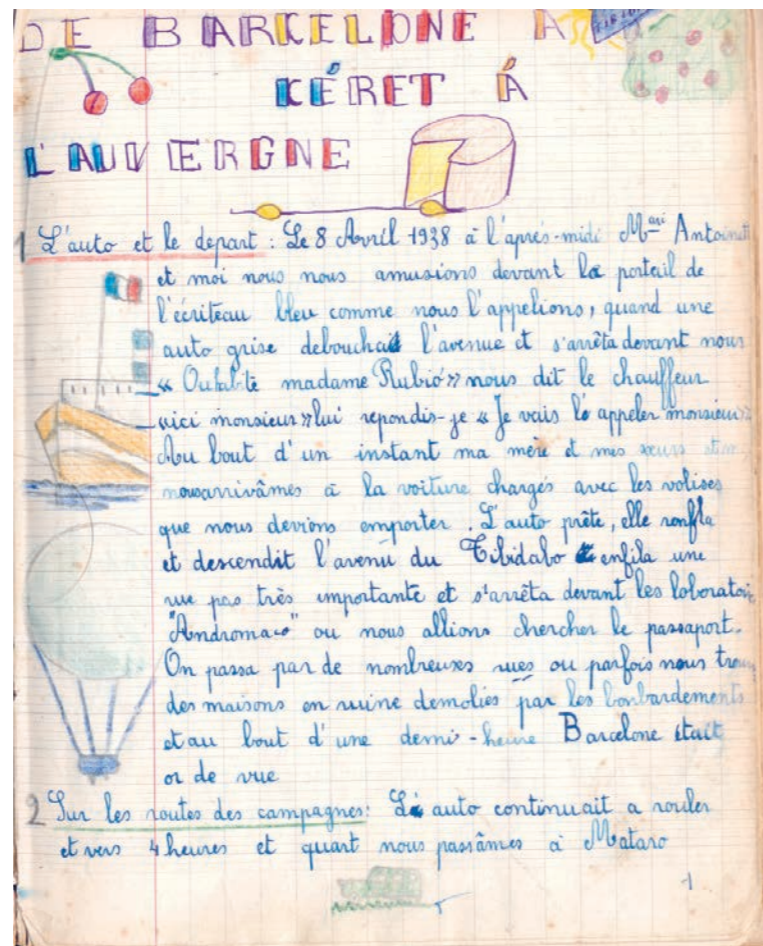 DE BARCELONE A
KÉRET Á
L'AUVERGNE
1 L'auto et le depart : Le 8 Avril 1938 à l'après-midi Mari Antoinett
et moi nous nous amusions devant la portail de
l'écriteau bleu comme nous l'appelions, quand une
auto grise debouchait l'avenue et s'arrêta devant nous
« Ouhabite madame Rubió » nous dit le chauffeur
« ici monsieur » lui repondis-je « Je vais l'appeler monsieur »
Au bout d'un instant ma mère et mes sœurs
nousarrivâmes à la voiture chargés avec les valises
que nous devions emporter. L'auto prête, elle ronfla
et descendit l'avenu du Tibidabo enfila une
rue pas très importante et s'arrêta devant les laboratoir
"Andromaco" ou nous allions chercher le passaport.
On passa par de nombreuses rues ou parfois nous trou
des maisons en ruine demolies par les bonbardements
et au bout d'une demi-heure Barcelone était
or de vue
2 Sur les routes des campagnes: L'auto continuait a rouler
et vers 4 heures et quart nous passâmes à Mataro
1